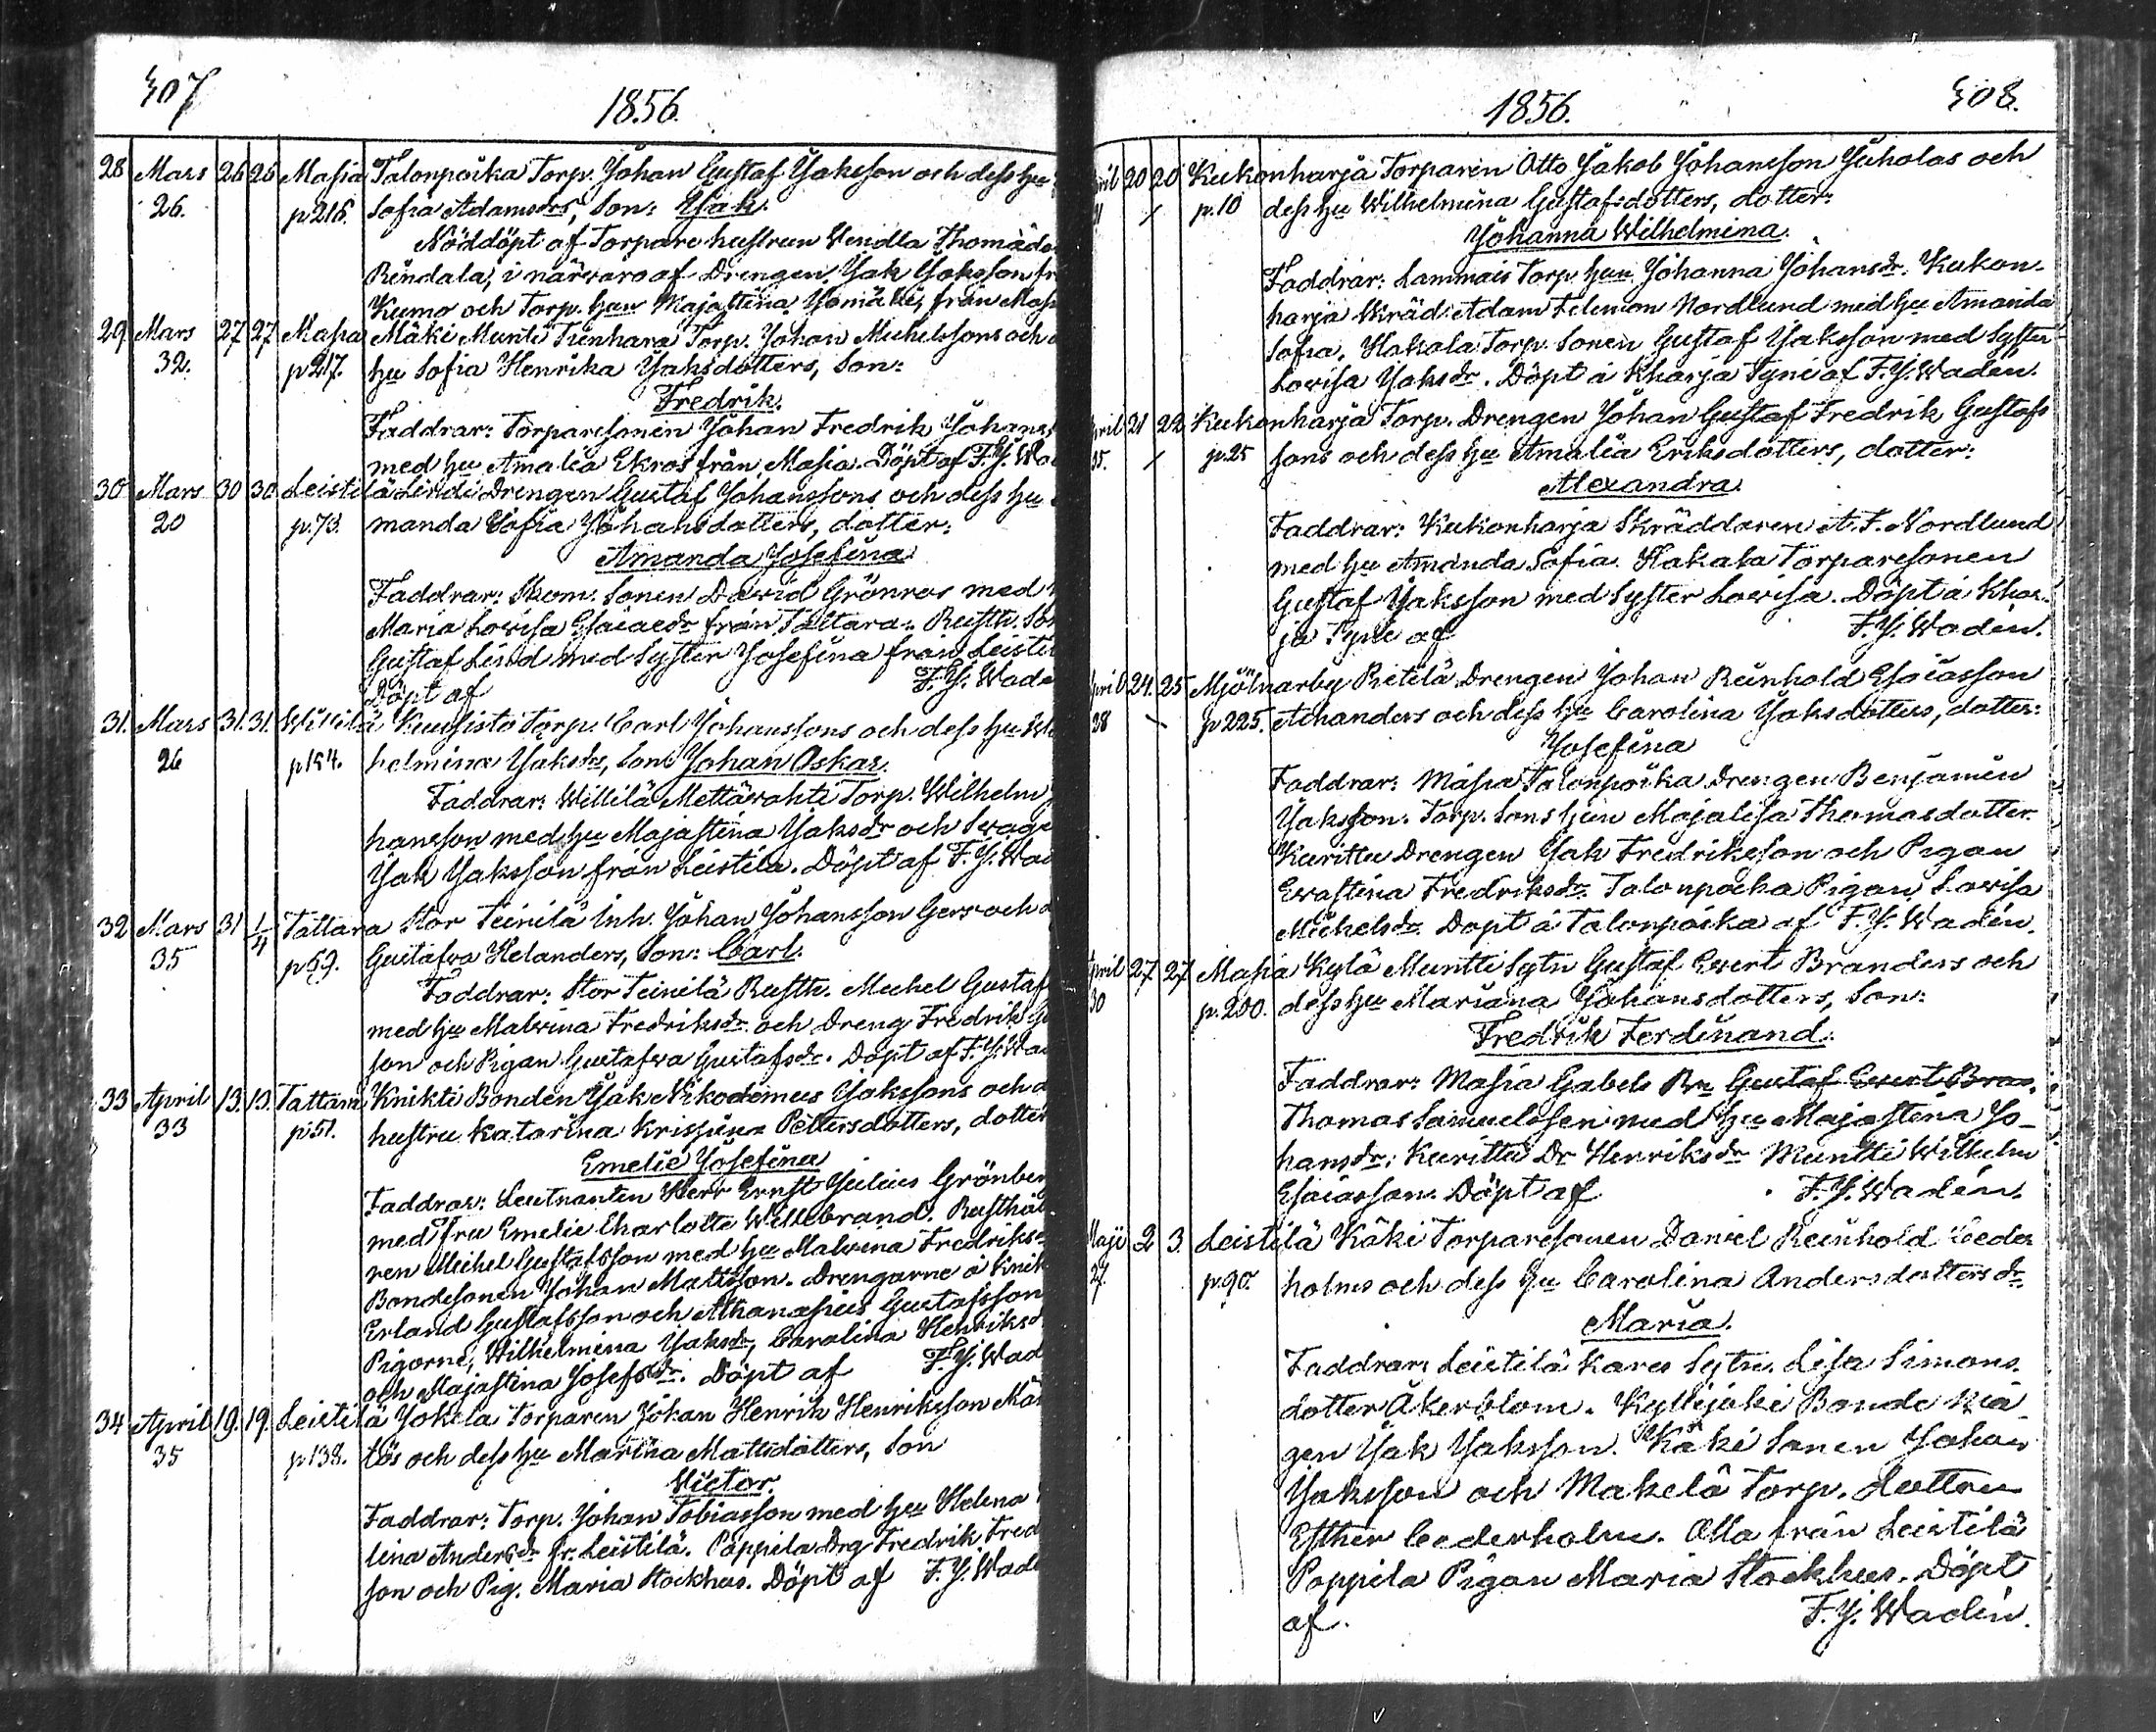 407
1856.
28 Mars 26 26 Masia Talonpoika Torp. Johan Gustaf Jaksson och dess hu
26. p 216. Sofia Adamsdrs, Son: Isak.
Nöddöpt af Torpare hustrun Wendla Thomædr
Rindala, i närwaro af Drengen Isak Jaksson fr
Kumo och Torp. hun Majastina Yomäki, från Masi
29 Mars 27 27 Masia Mäki Muntti Tienhara Torp. Johan Michelssons och d
32. p 217. hu Sofia Henrika Jaksdotters, Son:
Fredrik.
Faddrar: Torparesonen Johan Fredrik Johans
med hu Amalia Ekros från Masia. Döpt af F.J. Wa
30 Mars 30 30 Leistilä Lindi Drengen Gustaf Johanssons och dess hu A
20 p.73. manda Sofia Johansdotters, dotter:
Amanda Josefina
Faddrar: Skom. Sonen David Grönroos med
Maria Lovisa Esaiaedr från Tattara. Rusth. Son
Gustaf Lind med Syster Josefina från Leisti
Döpt af F.J. Wade
31. Mars 31. 31. Willilä Kuusisto Torp. Carl Johanssons och dess hu Wil
26 p 184. helmina Jaksdrs, Son Johan Oskar.
Faddrar: Willilä Mettävahti Torp. Wilhelm J
hansson med hu Majastina Jaksdr och Svåge
Isak Jaksson från Leistilä. Döpt af F.J. Wad
32 Mars 31 1/4 Tattara Stor Teinilä Inh. Johan Johansson Gers och d
35 p 59. Gustafva Helanders, Son: Carl.
Faddrar: Stor Teinilä Rusth. Michel Gustaf
med hu Malvina Fredriksdr och Dreng Fredrik Gu
son och Pigan Gustafva Gustafsdr. Döpt af F.J. Wa
33 April 13. 13. Tattara Knikti Bonden Isak Nikodemus Jakssons och d
33 p 51. hustru Katarina Krispina Pettersdotters, dotter
Emelie Josefina
Faddrar: Leutnanten Herr Ernst Julius Grönber
med fru Emelie Charlotte Willebrand. Rusthål
ren Michel Gustafsson med hu Malvina Fredriksd
Bondesonen Johan Matsson. Drengarne å Knik
Erland Gustafsson och Athanasius Gustafsson
Pigorne, Wilhelmina Jaksdr, Carolina Henriksd
och Majastina Josefsdr. Döpt af F.J. Wad
34 April 19. 19. Leistilä Jokela Torparen Johan Henrik Henriksson Män
35 p 138. tös och dess hu Marina Mattsdotters, Son
Victor.
Faddrar: Torp. Johan Tobiasson med hu Helena
lina Andersdr fr. Leistilä. Poppila Drg Fredrik Fred
son och Pig. Maria Stockhus. Döpt af F.J. Wade
1856.
408.
ril 20 20 Kukonharja Torparen Otto Jakob Johansson Juholas och
21 / p. 10 dess hu Wilhelmina Gustafsdotters, dotter:
Johanna Wilhelmina.
Faddrar: Lammais Torp. hun Johanna Johansdr. Kukon-
harja Skräd. Adam Felemon Nordlund med hu Amanda
Sofia. Hakala Torp. Sonen Gustaf Jaksson med Syster
Lovisa Jaksdr. Döpt å Kharja Tyni af F.J. Wadén.
pril 21 22 Kukonharja Torp. Drengen Johan Gustaf Fredrik Gustafs
35. / p. 25 sons och dess hu Amalia Eriksdotters, dotter:
Alexandra.
Faddrar: Kukonharja Skräddaren A.F. Nordlund
med hu Amanda Sofia. Hakala Torparesonen
Gustaf Jaksson med Syster Lovisa. Döpt å Khar-
ja Tyni af F.J. Wadén.
pril 24. 25 Mjölnarby Ritilä Drengen Johan Reinhold Esaiasson
28 / p 225. Achanders och dess hu Carolina Jaksdotters, dotter:
Josefina
Faddrar: Masia Talonpoika Drengen Benjamin
Jaksson. Torp. Sons hun Majalisa Thomasdotter
Kurittu Drengen Isak Fredriksson och Pigan
Evastina Fredriksdr. Talonpoika Pigan Lovisa
Michelsdr. Döpt å Talonpoika af F.J. Wadén.
pril 27 27 Masia Kylä Muntti Sytn Gustaf Evert Branders och
30 p. 200. dess hu Mariana Johansdotters, Son:
Fredrik Ferdinand.
Faddrar: Masia Gabels Bn Gustaf Evert Bran.
Thomas Samuelssen med hu Majastina Jo-
hansdr: Kuritta Dr Henriksdr Muntti Wilhelm
Esaiasson. Döpt af F.J. Wadén.
Maji 2 3 Leistilä Käki Torparesonen Daniel Reinhold Ceder
27. p. 90. holms och dess hu Carolina Andersdotters dr
Maria.
Faddrar: Leistilä Kares Sytn. Lisa Simons
dotter Åkerblom. Kyllijoki Bonde Må-
gen Isak Jaksson. Käki Sonen Johan
Jaksson och Makelä Torp. dottren
Esther Cederholm. Alla från Leistilä
Poppila Pigan Maria Stockhus. Döpt
af. F.J. Wadén.